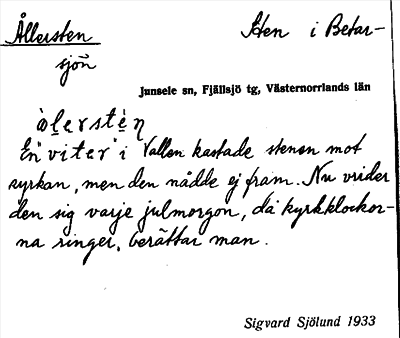 Ållersten
Sten i Betar-
sjön
Junsele sn, Fjällsjö tg, Västernorrlands län
En "viter" i Vallen kastade stenen mot
kyrkan, men den nådde ej fram. Nu vrider
den sig varje julmorgon, då kyrkklockor-
na ringer, berättar man.
Sigvard Sjölund 1933